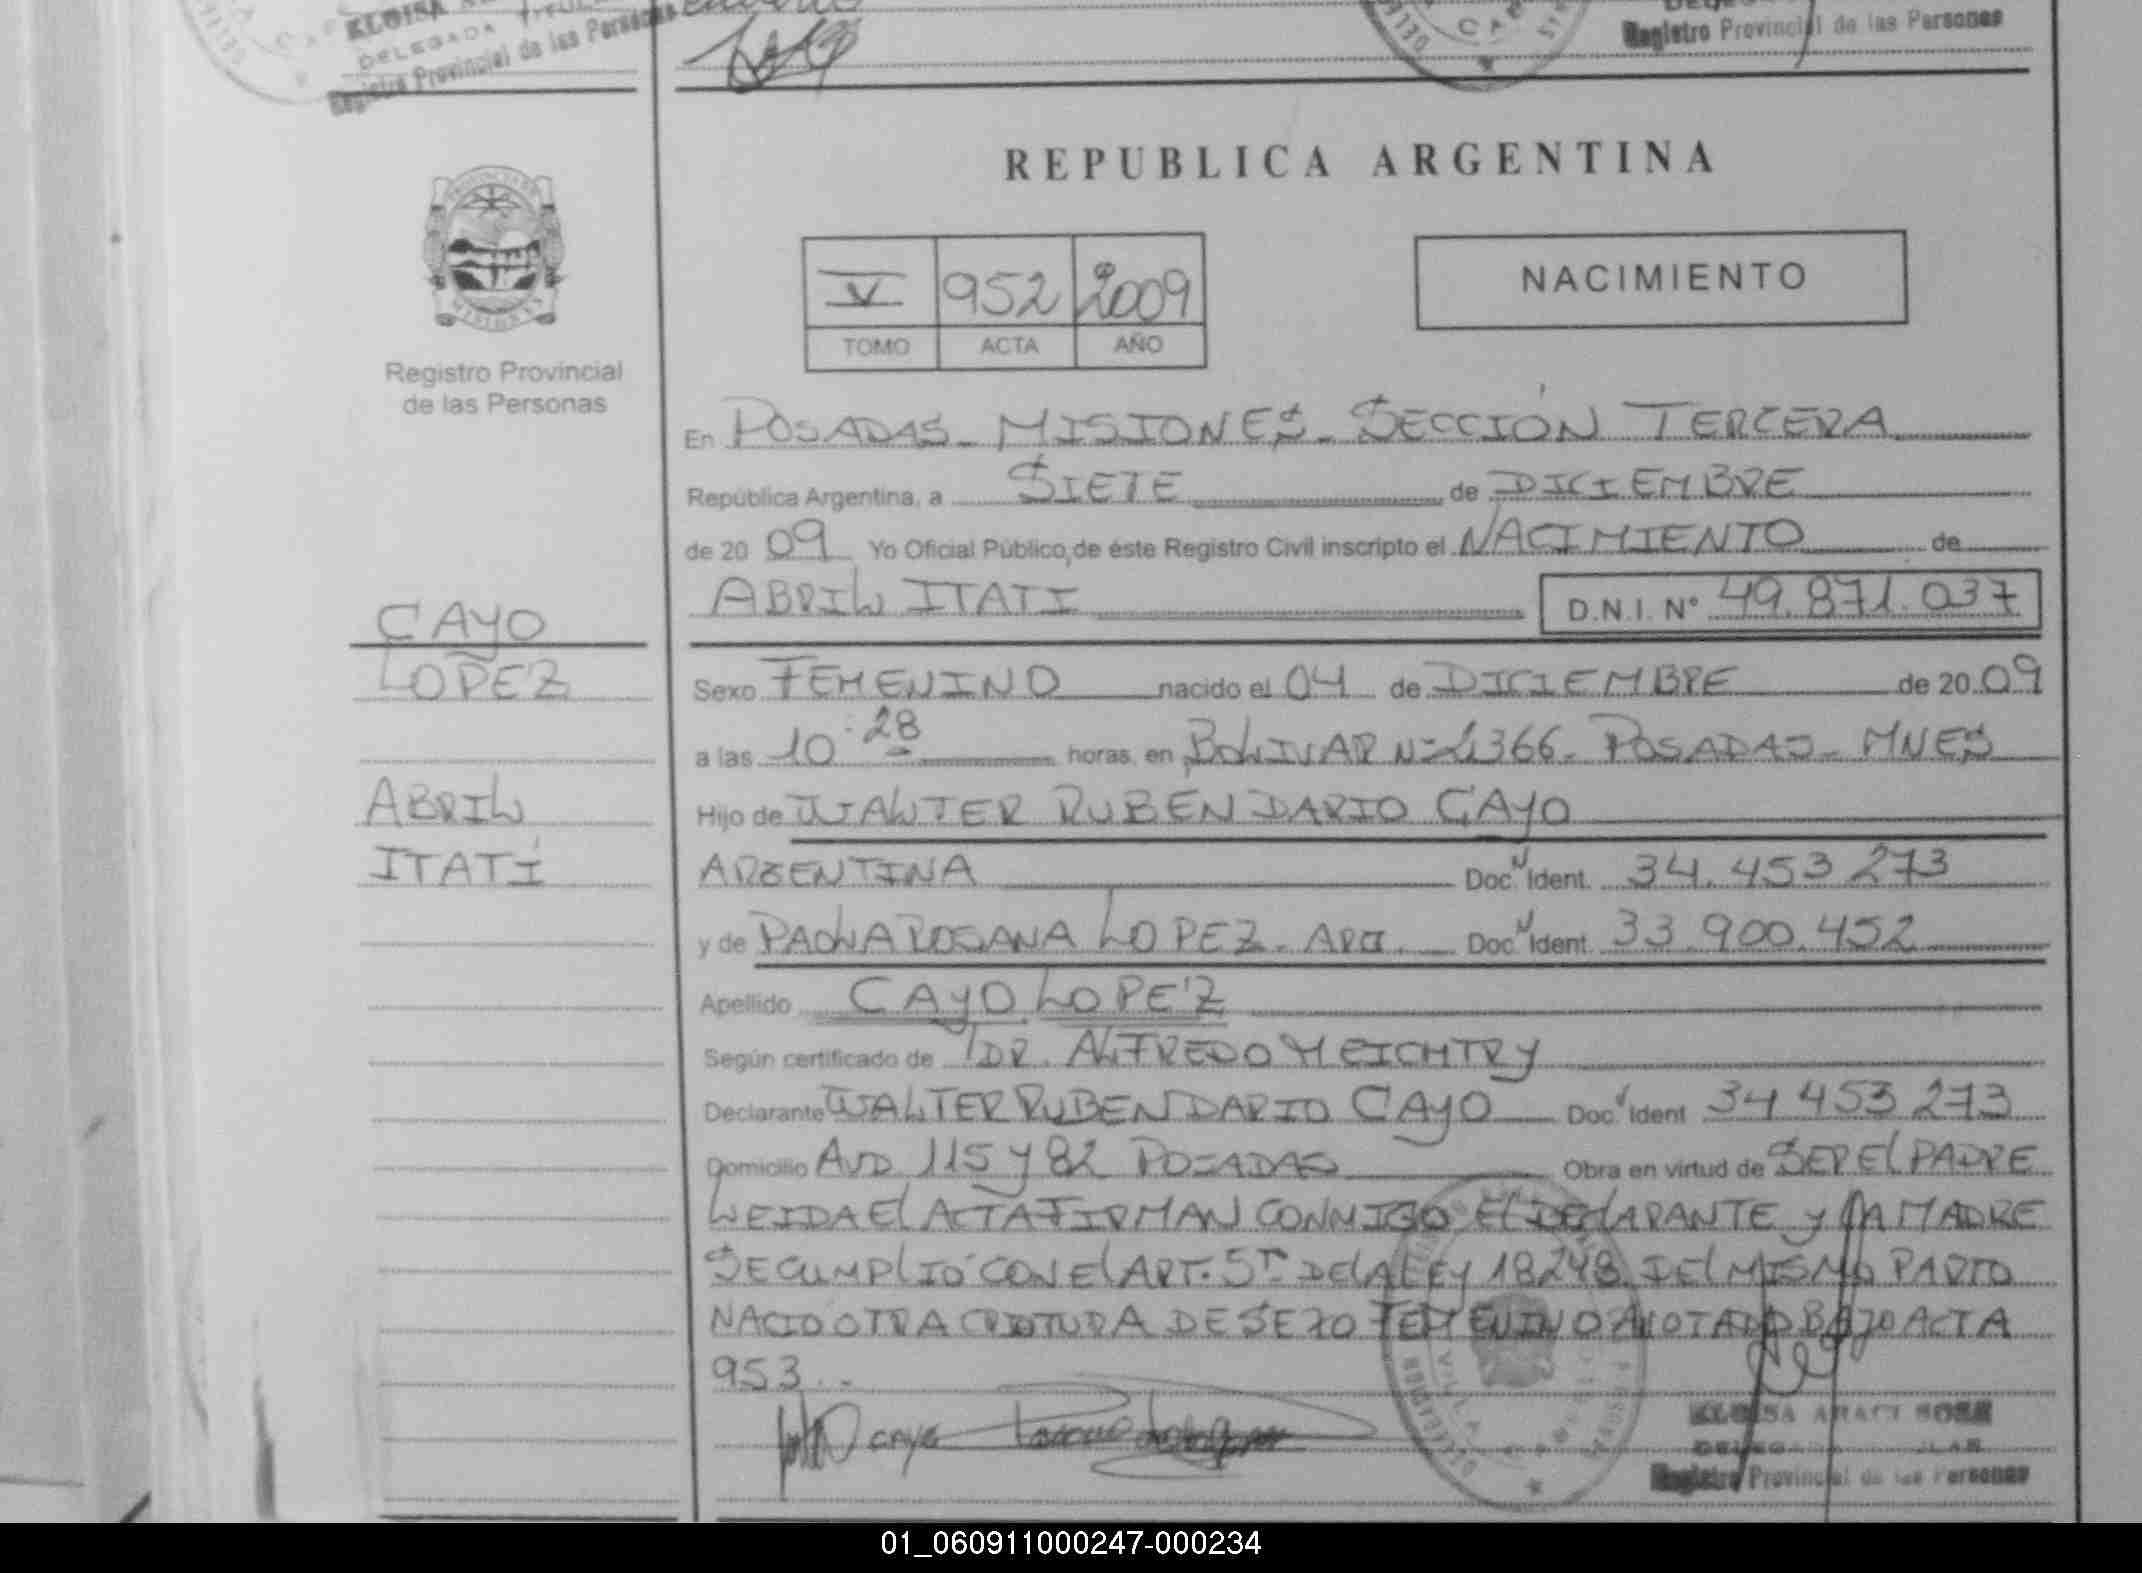 ELOISA
DELEGADA TITULAR
Registro Provincial de las Personas
Registro Provincial de las Personas
REPUBLICA ARGENTINA
V 952 2009
TOMO ACTA AÑO
NACIMIENTO
Registro Provincial
de las Personas
En POSADAS - MISIONES - SECCIÓN TERCERA
República Argentina, a SIETE de DICIEMBRE
de 20 09 Yo Oficial Público, de éste Registro Civil inscripto el NACIMIENTO de
ABRIL ITATI D.N.I. N° 49.871.037
CAYO
LOPEZ
ABRIL
ITATÍ
Sexo FEMENINO nacido el 04 de DICIEMBRE de 20 09
a las 10:28 horas, en BOLIVAR Nº 1366 - POSADAS - MNES
Hijo de WALTER RUBEN DARIO CAYO
ARGENTINA Doc. N Ident. 34.453 273
y de PAOLA ROSANA LOPEZ - ARG. Doc. N Ident. 33.900.452
Apellido CAYO LOPEZ
Según certificado de DR. ALFREDO MEICHTRY
Declarante WALTER RUBEN DARIO CAYO Doc. Ident 34 453 273
Domicilio AVD 115 y 82 POSADAS Obra en virtud de SER El PADRE
LEIDA El ACTA FIRMAN CONMIGO El DEClARANTE y lA MADRE
SE CUMPlIÓ CON El ART. 5to DE lA lEy 18248. DEl MISMO PARTO
NACIO OTRA CRIATURA DE SEXO FEMENINO ANOTADO BAJO ACTA
953.-
ELOISA ARACI SOSA
DELEGADA TITULAR
Registro Provincial de las Personas
01_060911000247-000234